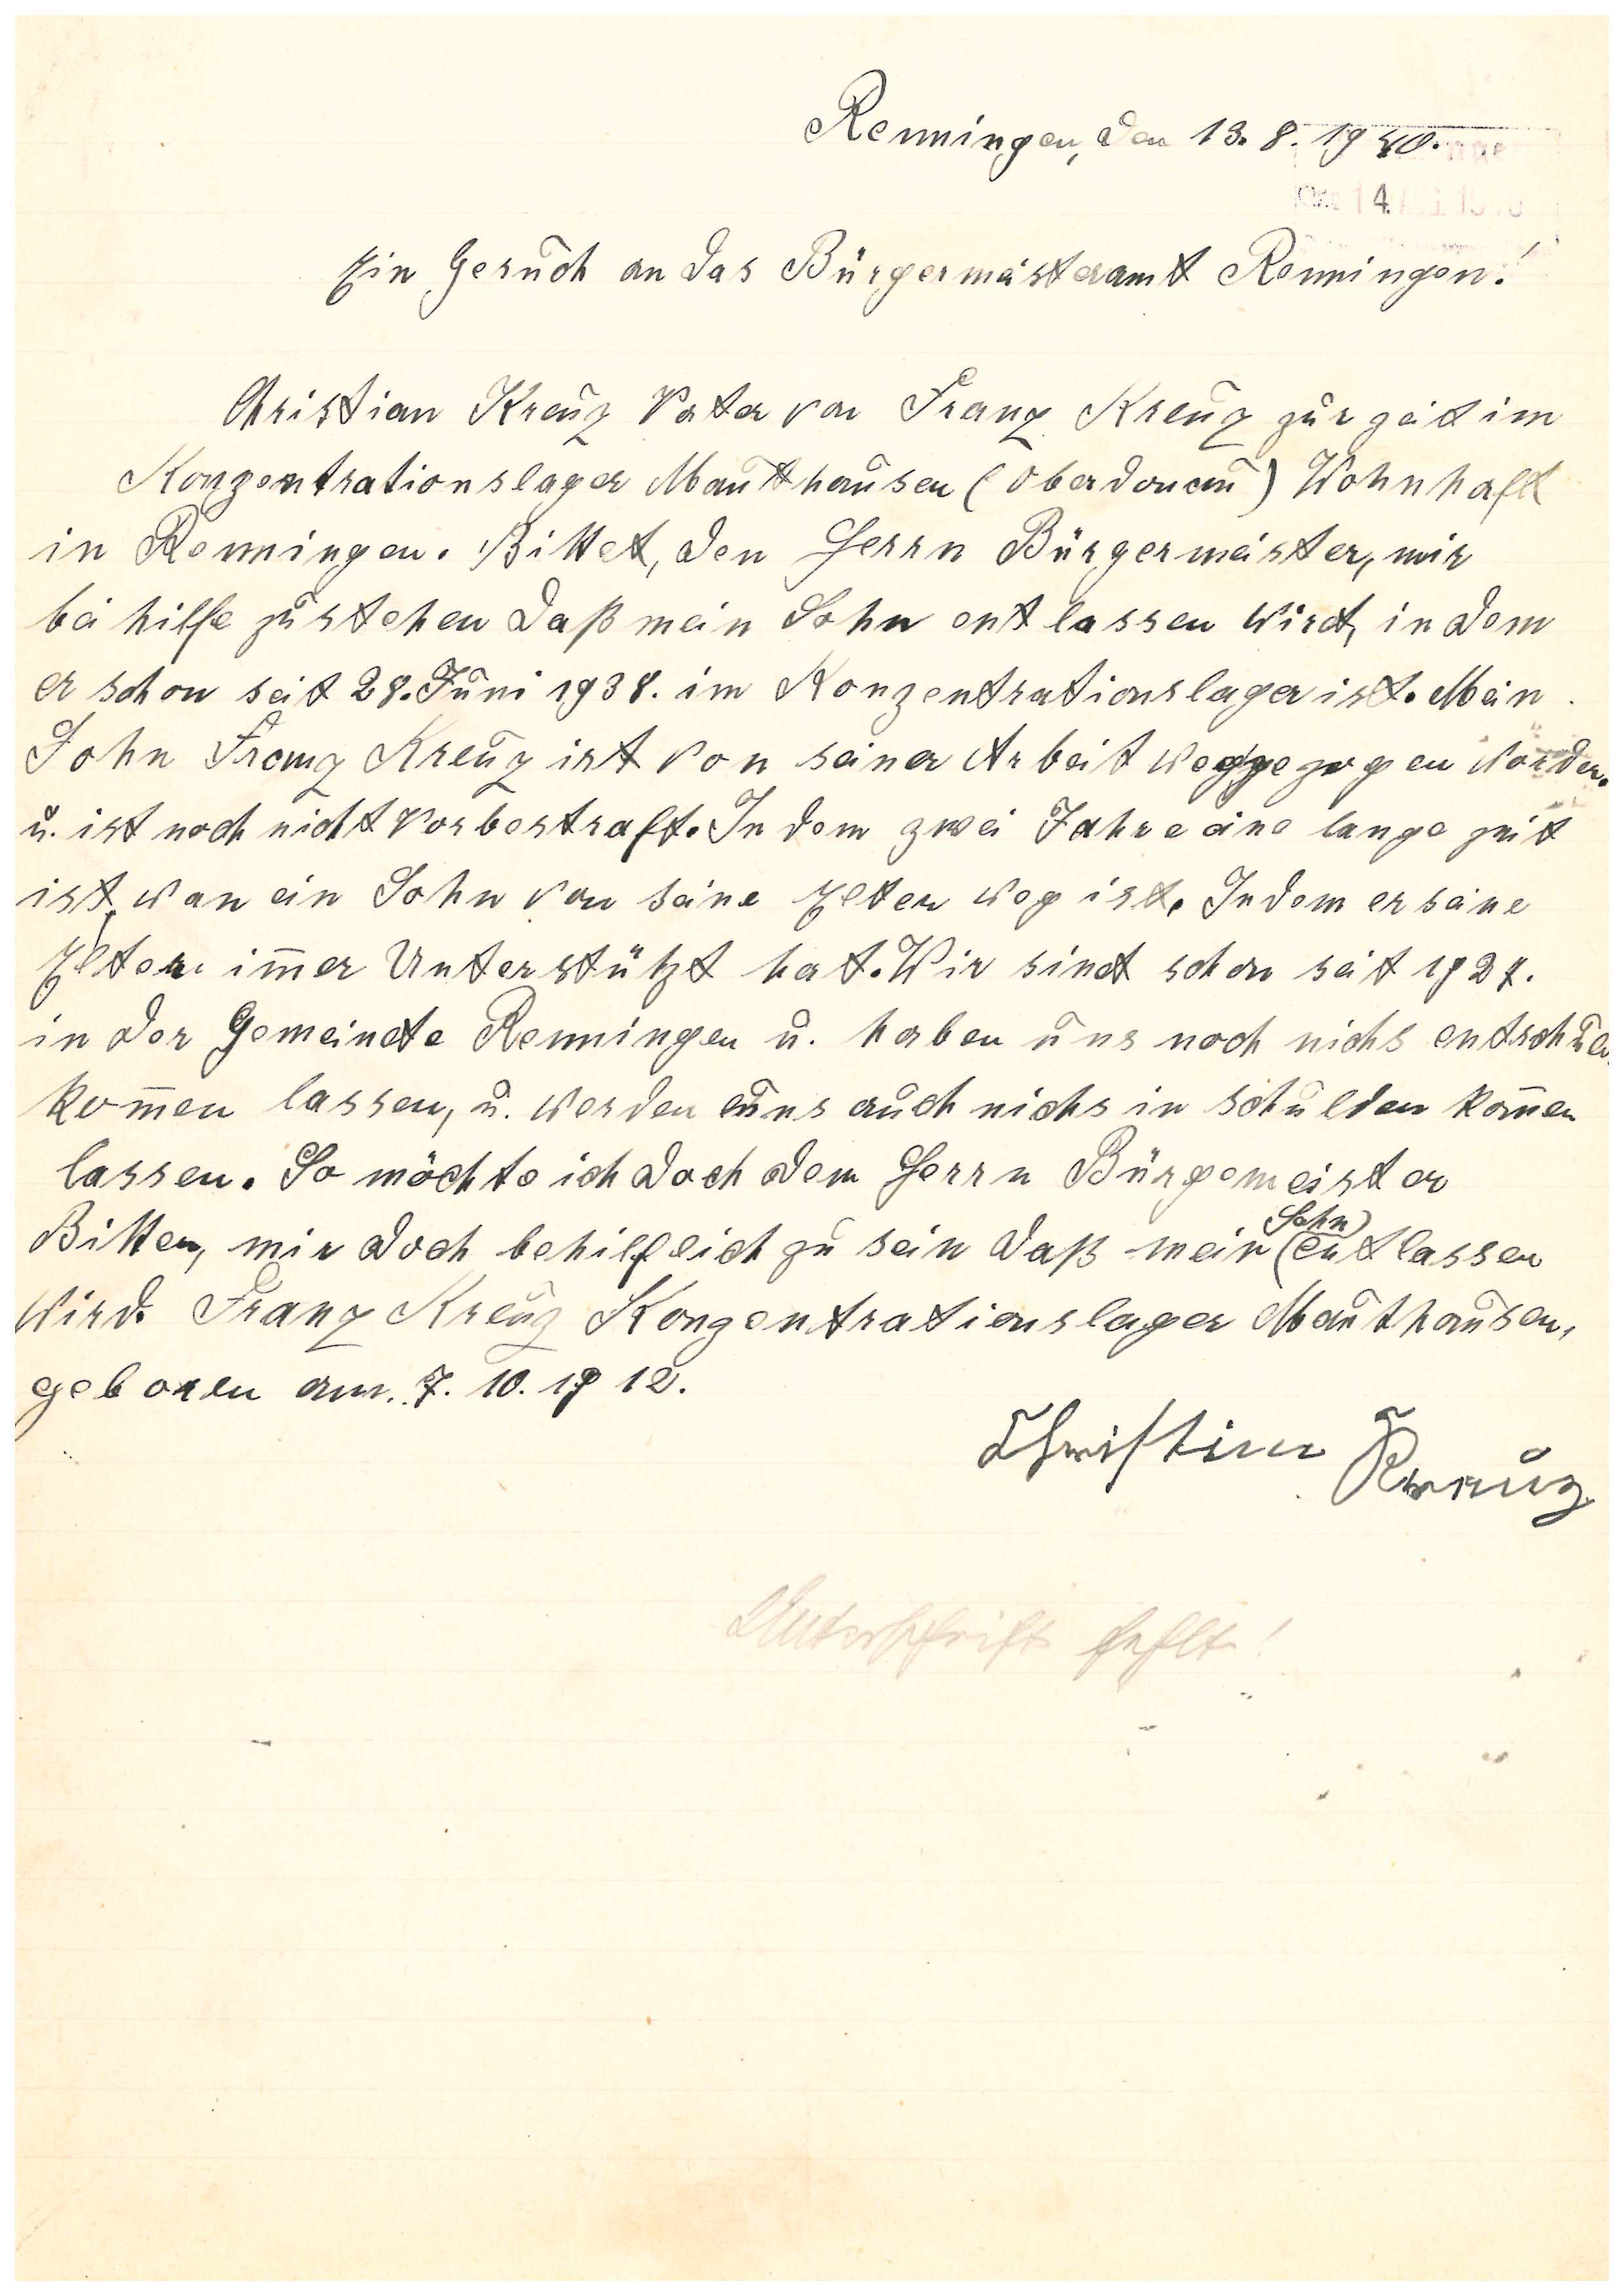 Renningen, den 13. 8. 1940.
14. AUG. 19
Ein Gesuch an das Bürgermeisteramt Renningen!
Christian Kreuz Vater von Franz Kreuz zur zeit im
Konzentrationslager Mauthausen (Oberdonau) Wohnhaft
in Renningen. Bittet, den Herrn Bürgermeister, mir
bei hilfe zu stehen daß mein Sohn entlassen wird, in dem
er schon seit 28. Juni 1938. im Konzentrationslager ist. Mein
Sohn Franz Kreuz ist von seiner Arbeit weggezogen worden.
u. ist noch nicht Vorbestraft. In dem zwei Jahre eine lange zeit
ist, wan ein Sohn von seine Elten weg ist. Indem er seine
Eltern im̄er Unterstützt hat. Wir sind schon seit 1927.
in der Gemeinde Renningen u. haben uns noch nichs
kom̄en lassen, u. werden uns auch nichs in schulden kom̄en
lassen. So möchte ich doch dem Herrn Bürgemeister
Bitten, mir doch behilflich zu sein daß mein (Sohn) entlassen
wird. Franz Kreuz Konzentrationslager Mauthausen,
geboren am. 7. 10. 1912.
Christian Kreuz
Unterschrift fehlt!